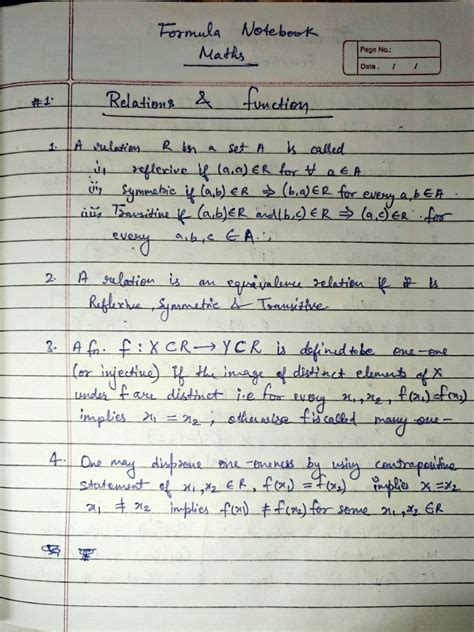 Formula Notebook
Maths
Page No.:
Date. / /
#1. Relations & function
1. A relation R on a set A is called
i, reflexive if (a,a) ∈ R for ∀ a ∈ A
ii, Symmetric if (a,b) ∈ R ⇒ (b,a) ∈ R for every a,b ∈ A
iii, Transitive if (a,b) ∈ R and (b,c) ∈ R ⇒ (a,c) ∈ R for
every a,b,c ∈ A.
2. A relation is an equivalence relation if it is
Reflexive, Symmetric & Transitive
3. A fn. f : X ⊂ R → Y ⊂ R is defined to be one-one
(or injective) If the image of distinct elements of X
under f are distinct i.e for every x₁, x₂, f(x₁) = f(x₂)
implies x₁ = x₂; otherwise f is called many one-
4. One may disprove one-oneness by using contrapositive
statement of x₁, x₂ ∈ R, f(x₁) = f(x₂) implies x₁ = x₂
x₁ ≠ x₂ implies f(x₁) ≠ f(x₂) for some x₁, x₂ ∈ R